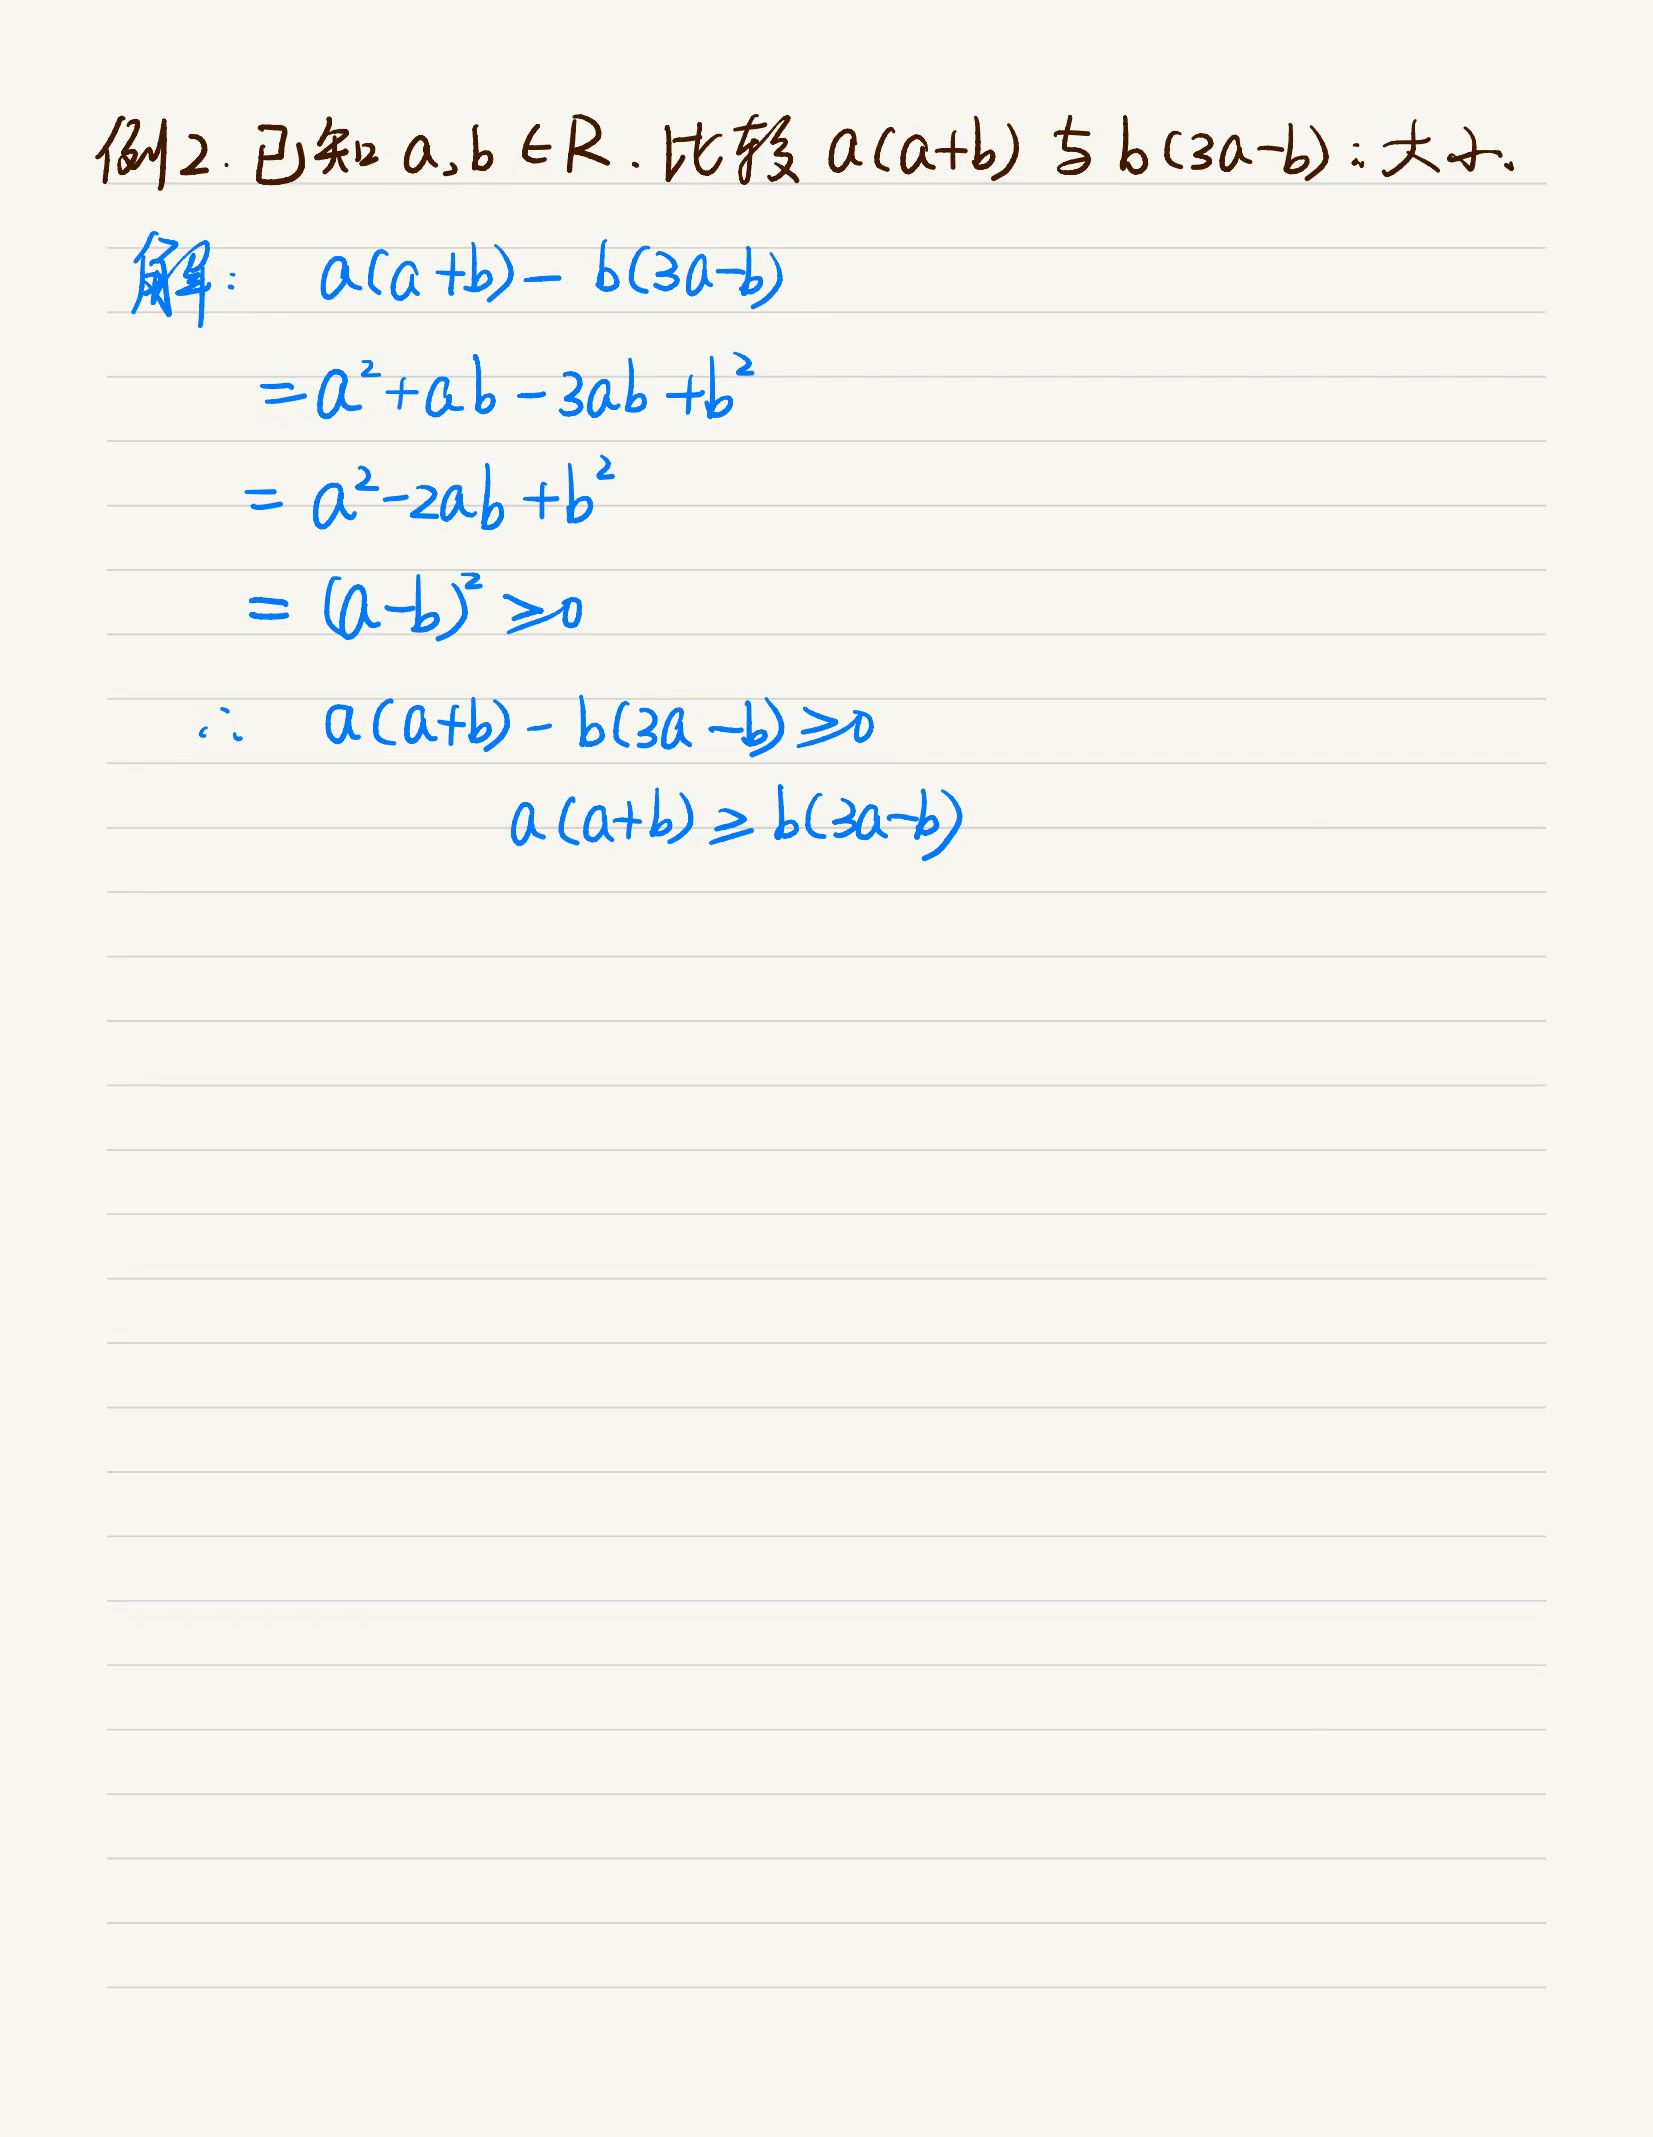 例2. 已知 a,b∈R. 比较 a(a+b) 与 b(3a-b) 大小.
解: a(a+b)-b(3a-b)
=a²+ab-3ab+b²
=a²-2ab+b²
=(a-b)²≥0
∴ a(a+b)-b(3a-b)≥0
a(a+b)≥b(3a-b)